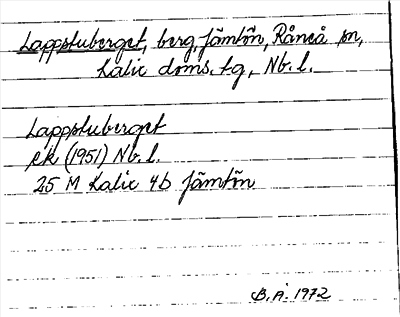 Lappstuberget, berg, Jämtön, Råneå sn,
Kalix doms. tg, Nb. l.
Lappstuberget
ek (1951) Nb. l.
25 M Kalix 4b Jämtön
B. Å. 1972